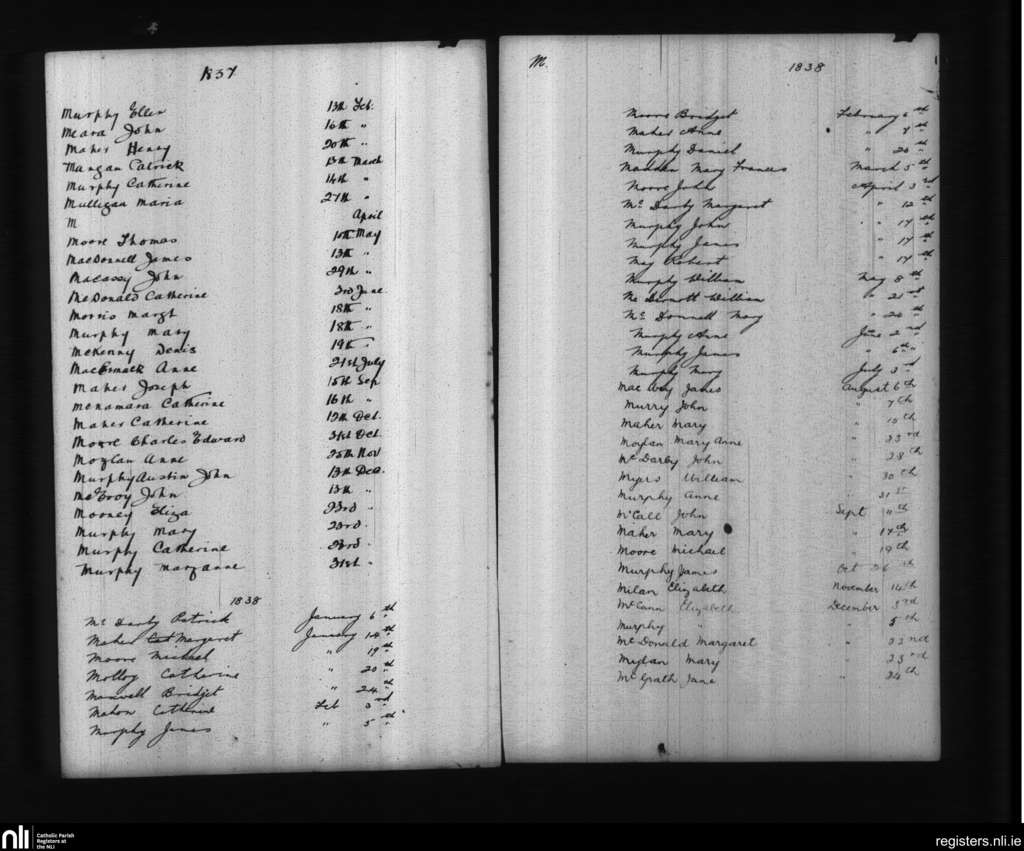 1837
Murphy Ellen 13th Feb.
Meara John 16th "
Maher Henry 20th "
Mangan Patrick 13th March
Murphy Catherine 14th "
Mulligan Maria 27th "
M April
Moore Thomas 10th May
MacDonnell James 13th "
Macassy John 29th "
McDonald Catherine 3rd June
Morris Margt 18th "
Murphy Mary 18th "
McKenny Denis 19th "
MacCormack Anne 21st July
Maher Joseph 15th Sep
McNamara Catherine 16th "
Maher Catherine 12th Oct.
Moore Charles Edward 31st Oct.
Moylan Anne 25th Nov
Murphy Austin John 13th Dec.
McEvoy John 13th "
Mooney Eliza 23rd "
Murphy Mary 23rd "
Murphy Catherine 23rd "
Murphy Maryanne 31st "
1838
Mc Darby Patrick January 6th
Maher Cat Margaret January 14th
Moore Michael " 19th
Molloy Catherine " 20th
Maxwell Bridget " 24th
Mahon Catherine Feb 3rd
Murphy James " 5th
M. 1838
Moore Bridget February 6th
Maher Anne " 7th
Murphy Daniel " 20th
Madden Mary Frances March 5th
Moore John April 3rd
Mc Darby Margaret " 12th
Murphy John " 17th
Murphy James " 17th
May Robert " 17th
Murphy William May 8th
Mc Dermott William " 21st
Mc Donnell Mary " 26th
Murphy Anne June 2nd
Murphy James " 6th "
Murphy Mary July 3rd
Mac James August 6th
Murry John " 7th
Maher Mary " 15th
Moylan Mary Anne " 23rd
McDarby John " 28th
Myers William " 30th
Murphy Anne " 31st
McCall John Sept 11th
Maher Mary " 17th
Moore Michael " 19th
Murphy James Oct 26th
Milan Elizabeth November 14th
McCann Elizabeth December 3rd
Murphy " " 5th
McDonald Margaret " 22nd
Mylan Mary " 23rd
McGrath Jane " 24th
nli Catholic Parish
Registers at
the NLI
registers.nli.ie